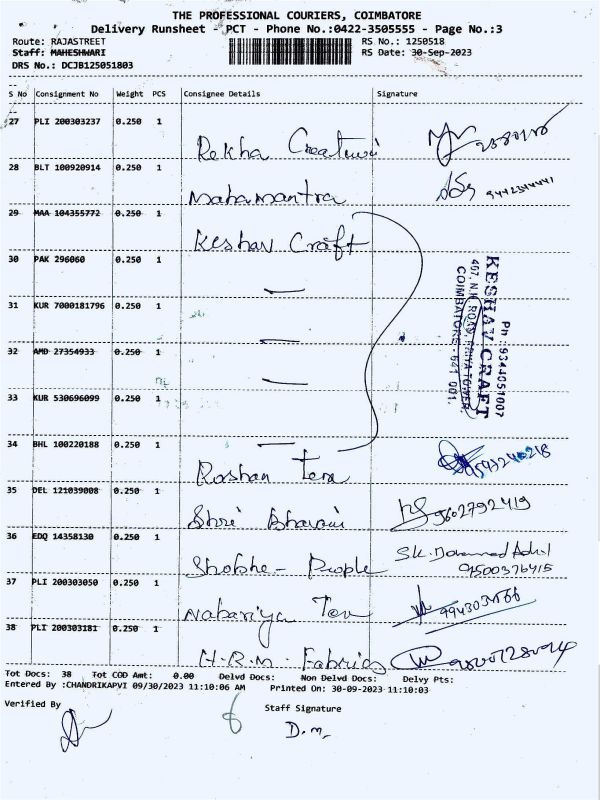 THE PROFESSIONAL COURIERS, COIMBATORE
Delivery Runsheet - PCT - Phone No.:0422-3505555 - Page No.:3
Route: RAJASTREET RS No.: 1250518
Staff: MAHESHWARI RS Date: 30-Sep-2023
DRS No.: DCJB125051803
S No Consignment No Weight PCS Consignee Details Signature
27 PLI 200303237 0.250 1 Rekha
28 BLT 100920914 0.250 1 Mahamantra
29 MAA 104355772 0.250 1 Keshav Craft
30 PAK 296060 0.250 1 —
31 KUR 7000181796 0.250 1 —
32 AMD 27354933 0.250 1 —
33 KUR 530696099 0.250 1 —
34 BHL 100220188 0.250 1 Roshan Tex
35 DEL 121039008 0.250 1 Shri Bhavani 9602792419
36 EDQ 14358130 0.250 1 Shobhe - People S.K. 9500376415
37 PLI 200303050 0.250 1 Nabariya Tex
38 PLI 200303181 0.250 1 H.R.M. Fabrics
KESHAV CRAFT
COIMBATORE - 641 001.
Ph : 9344051007
Tot Docs: 38 Tot COD Amt: 0.00 Delvd Docs: Non Delvd Docs: Delvy Pts:
Entered By :CHANDRIKAPVI 09/30/2023 11:10:06 AM Printed On: 30-09-2023 11:10:03
Verified By Staff Signature
D.M.